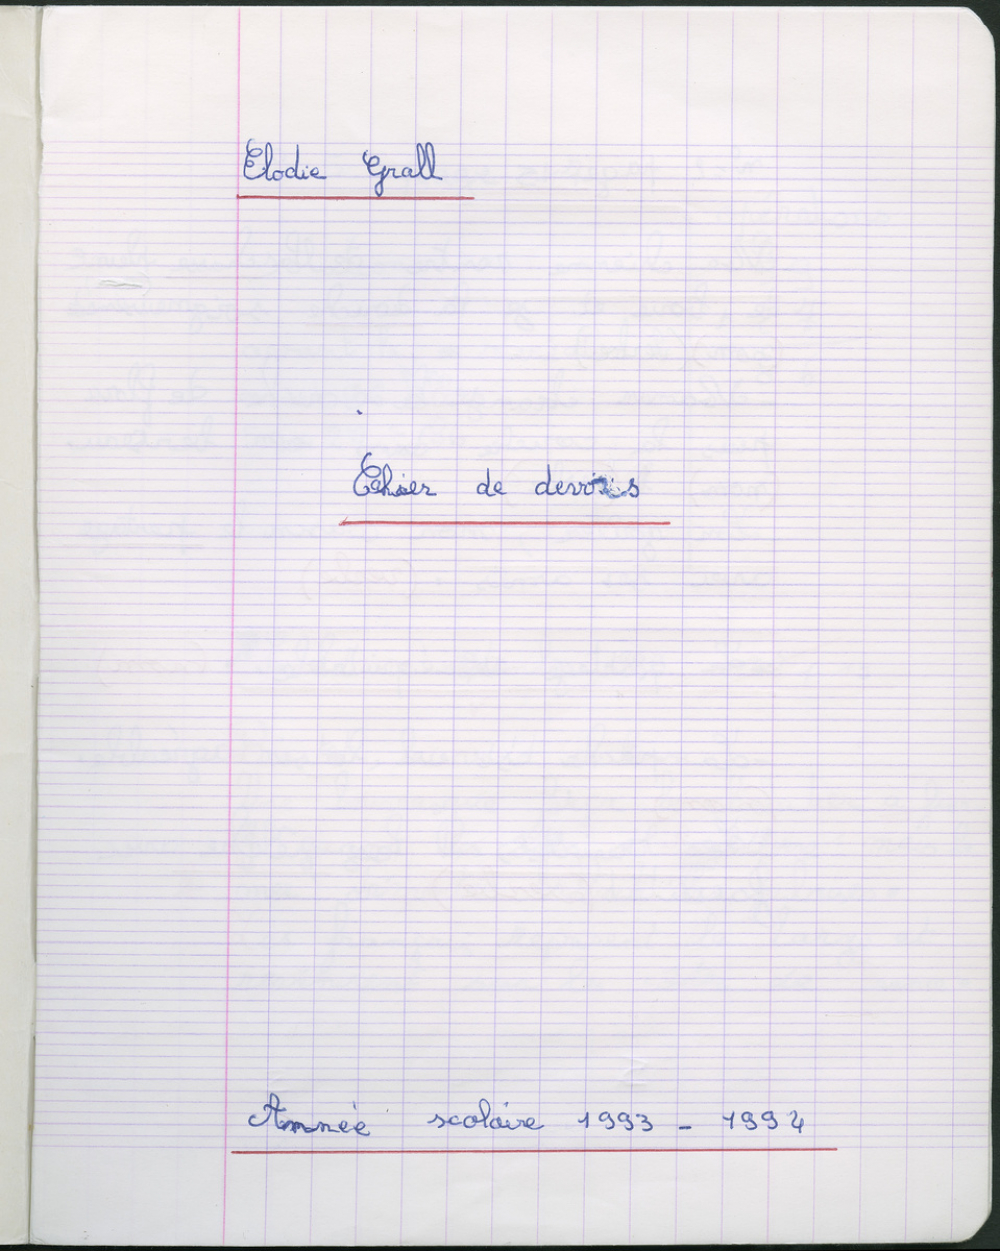 Elodie Grall
Cahier de devoirs
Année scolaire 1993 - 1994